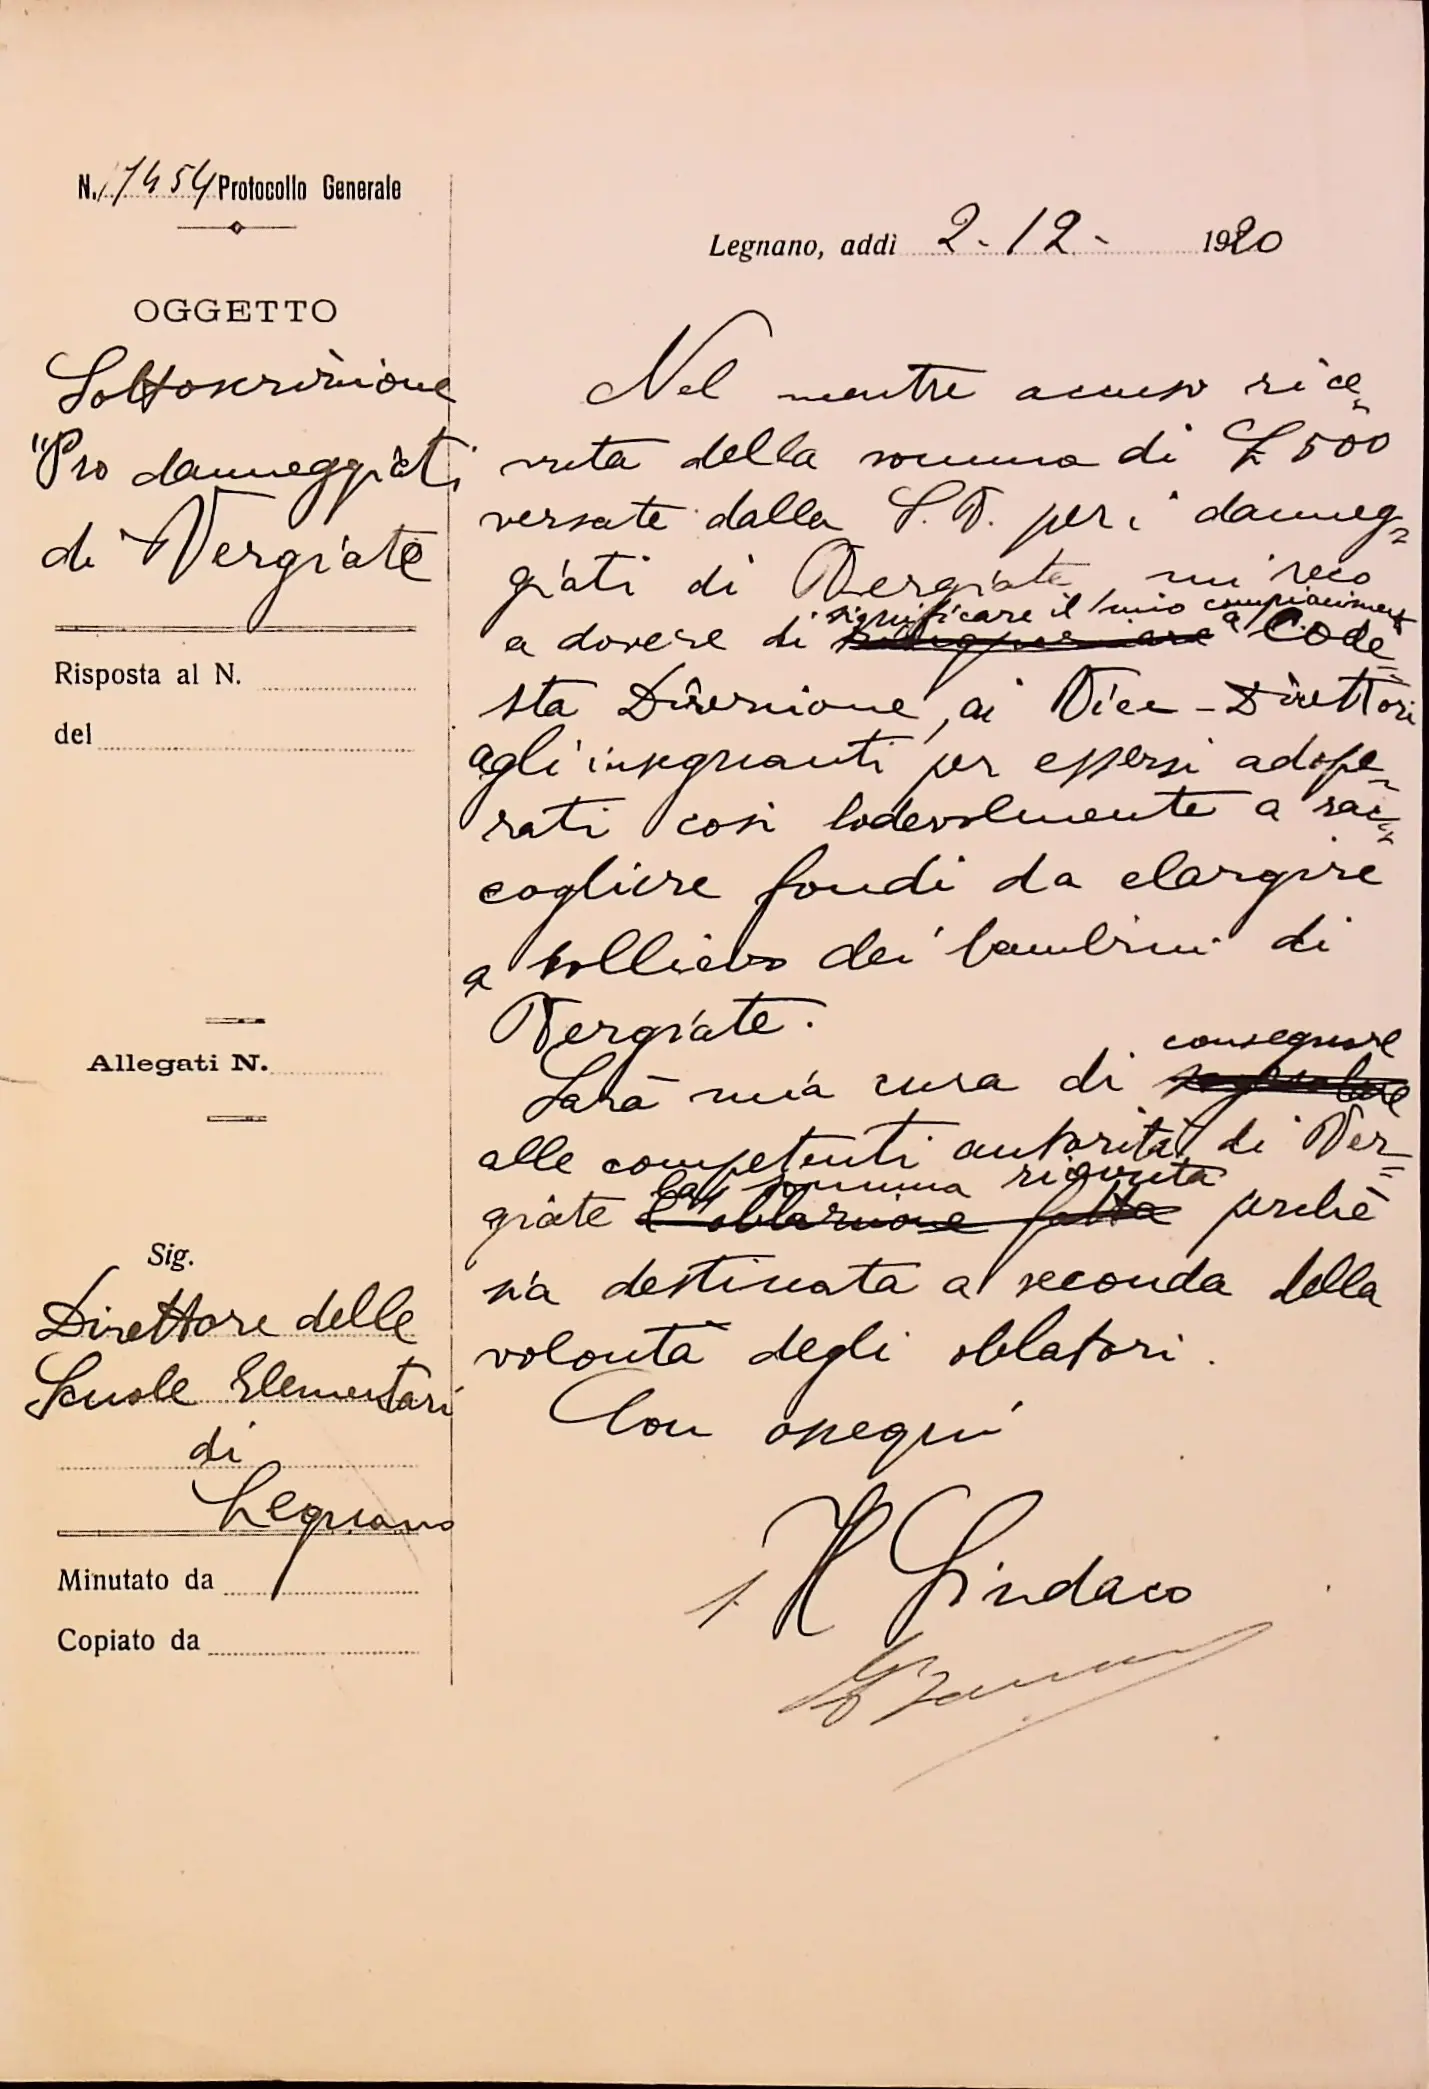 N. 17454 Protocollo Generale
OGGETTO
Sottoscrizione
"Pro danneggiati
di Vergiate
Risposta al N.
del
Allegati N.
Sig.
Direttore delle
Scuole Elementari
di
Legnano
Minutato da
Copiato da
Legnano, addì 2-12- 1920
Nel mentre accuso rice=
vuta della somma di £ 500
versate dalla S.V. per i danneg=
giati di Vergiate, mi reco
significare il mio compiacimento
a dovere di a Code=
sta Direzione, ai Vice-Direttori
agli insegnanti per essersi adope=
rati così lodevolmente a rac=
cogliere fondi da elargire
a sollievo dei bambini di
Vergiate.
consegnare
Sarà mia cura di
alle competenti autorità di Ver=
la somma ricevuta
giate l'oblazione fatta perchè
sia destinata a seconda della
volontà degli oblatori.
Con ossequi
Il Sindaco